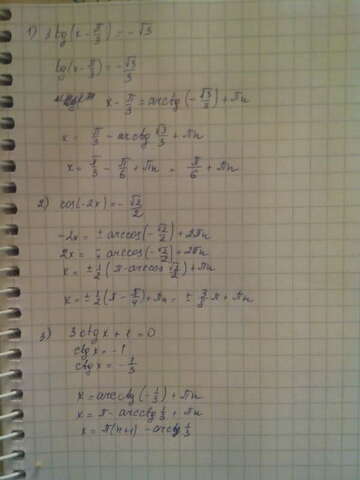 1) 3 tg(x - π/3) = -√3
tg(x - π/3) = -√3/3
x - π/3 = arctg(-√3/3) + πn
x = π/3 - arctg √3/3 + πn
x = π/3 - π/6 + πn = π/6 + πn
2) cos(-2x) = -√2/2
-2x = ± arccos(-√2/2) + 2πn
2x = ∓ arccos(-√2/2) + 2πn
x = ± 1/2 (π - arccos √2/2) + πn
x = ± 1/2 (π - π/4) + πn = ± 3/8 π + πn
3) 3 ctg x + 1 = 0
ctg x = -1
ctg x = -1/3
x = arcctg(-1/3) + πn
x = π - arcctg 1/3 + πn
x = π(n+1) - arcctg 1/3